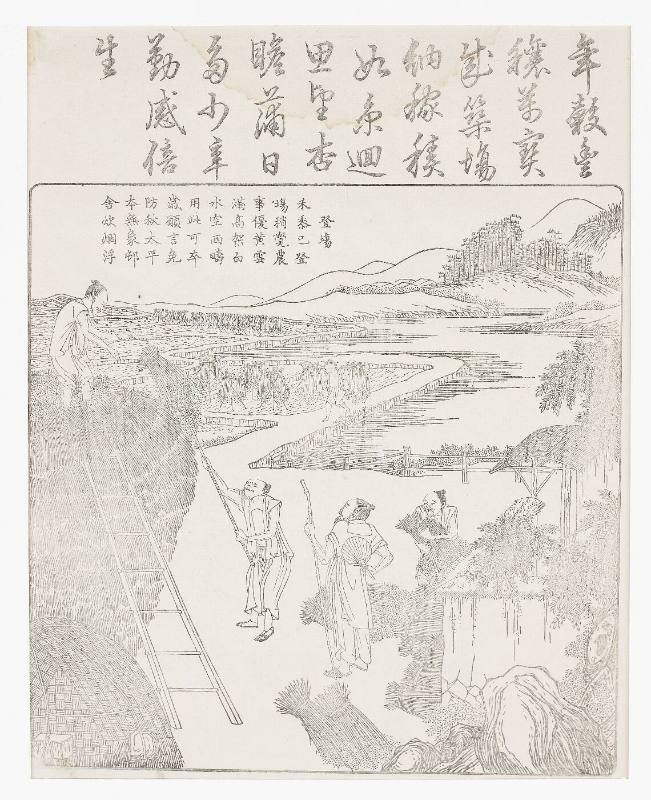 年穀豐
穰萬寶
成築場
納稼積
如京迴
思望杏
瞻蒲日
多少辛
勤感倍
生
登場
禾黍已登
場稍覺農
事優黄雲
滿高架白
水空西疇
用此可卒
歲願言免
防秋太平
本無象邨
舍炊烟浮